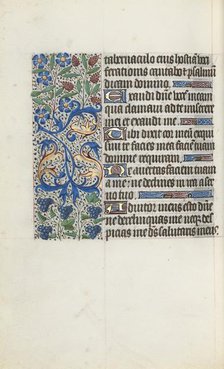 tabernaculo eius hostiam vo
ciferationis cantabo et psalmū
dicam domino.
Exaudi dne vocē meam
qua clamavi ad te miserere
mei et exaudi me.
Tibi dixit cor meū exqui
sivit te facies mea faciem tuam
domine requiram.
Ne avertas faciem tuam
a me ne declines in ira a ser
vo tuo.
Adiutor meus esto dne
ne derelinquas me neque des
picias me ds salutaris meus.